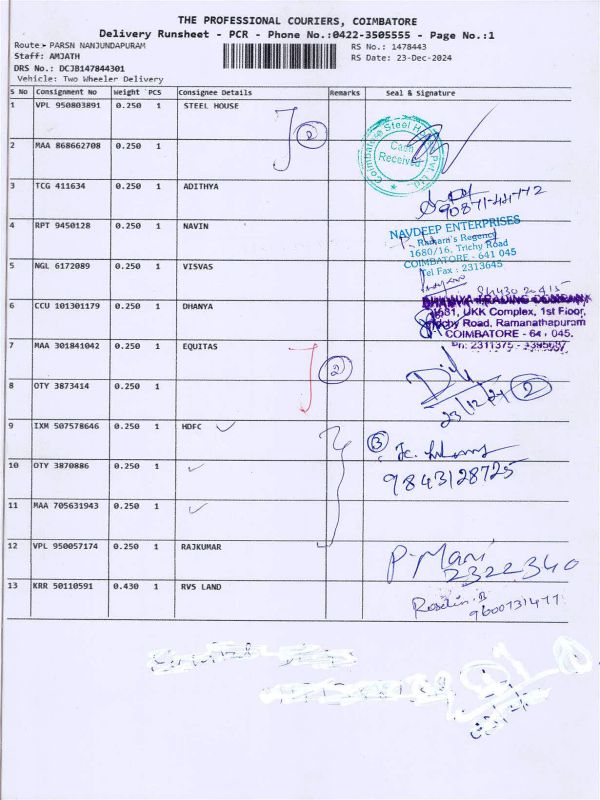 THE PROFESSIONAL COURIERS, COIMBATORE
Delivery Runsheet - PCR - Phone No.:0422-3505555 - Page No.:1
Route:- PARSN NANJUNDAPURAM
Staff: AMJATH
DRS No.: DCJB147844301
Vehicle: Two Wheeler Delivery
RS No.: 1478443
RS Date: 23-Dec-2024
S No Consignment No Weight PCS Consignee Details Remarks Seal & Signature
1 VPL 950803891 0.250 1 STEEL HOUSE
2 MAA 868662708 0.250 1
Coimbatore Steel House Pvt. Ltd.
Cash
Received
3 TCG 411634 0.250 1 ADITHYA
90871-44772
4 RPT 9450128 0.250 1 NAVIN
NAVDEEP ENTERPRISES
Ramani's Regency
1680/16, Trichy Road
COIMBATORE - 641 045
Tel Fax : 2313645
5 NGL 6172089 0.250 1 VISVAS
6 CCU 101301179 0.250 1 DHANYA
DHANYA TRADING COMPANY
UKK Complex, 1st Floor,
Trichy Road, Ramanathapuram
COIMBATORE - 64 045.
Ph: 2311375 -
7 MAA 301841042 0.250 1 EQUITAS
2
8 OTY 3873414 0.250 1
23/12/24 2
9 IXM 507578646 0.250 1 HDFC
3
10 OTY 3870886 0.250 1
9843128725
11 MAA 705631943 0.250 1
12 VPL 950057174 0.250 1 RAJKUMAR
P. Mani
2322340
13 KRR 50110591 0.430 1 RVS LAND
Roselin.B
9600731477